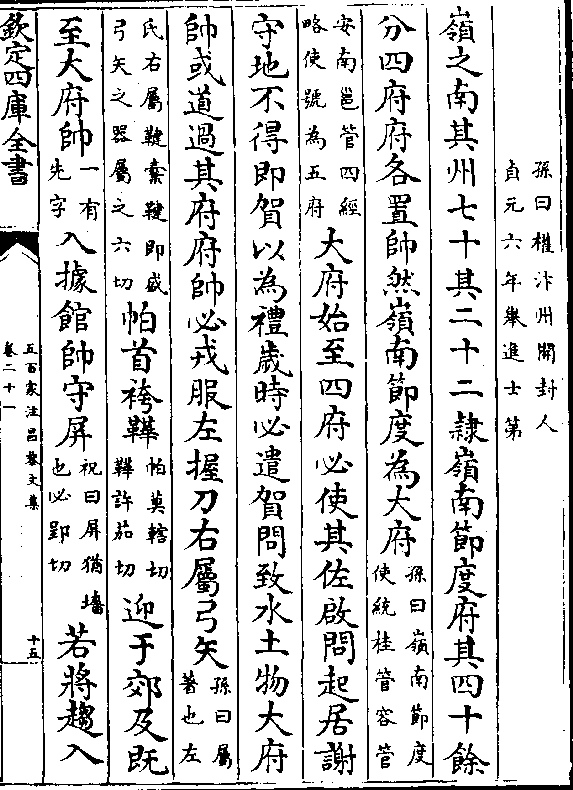 孫曰權汴州開封人
貞元六年舉進士第
嶺之南其州七十其二十二隷嶺南節度府其四十餘
分四府府各置帥然嶺南節度為大府孫曰嶺南節度
使統桂管容管
安南邕管四經
略使號為五府大府始至四府必使其佐啟問起居謝
守地不得即賀以為禮歲時必遣賀問致水土物大府
帥或道過其府府帥必戎服左握刀右屬弓矢孫曰屬
著也左
氏右屬鞬櫜鞬即盛
弓矢之器屬之六切帕首袴鞾帕莫轄切
鞾許茄切迎于郊及既
至大府帥一有
先字入據館帥守屏祝曰屏猶墻
也必郢切若將趨入
欽定四庫全書
五百家注昌黎文集
卷二十一
十五